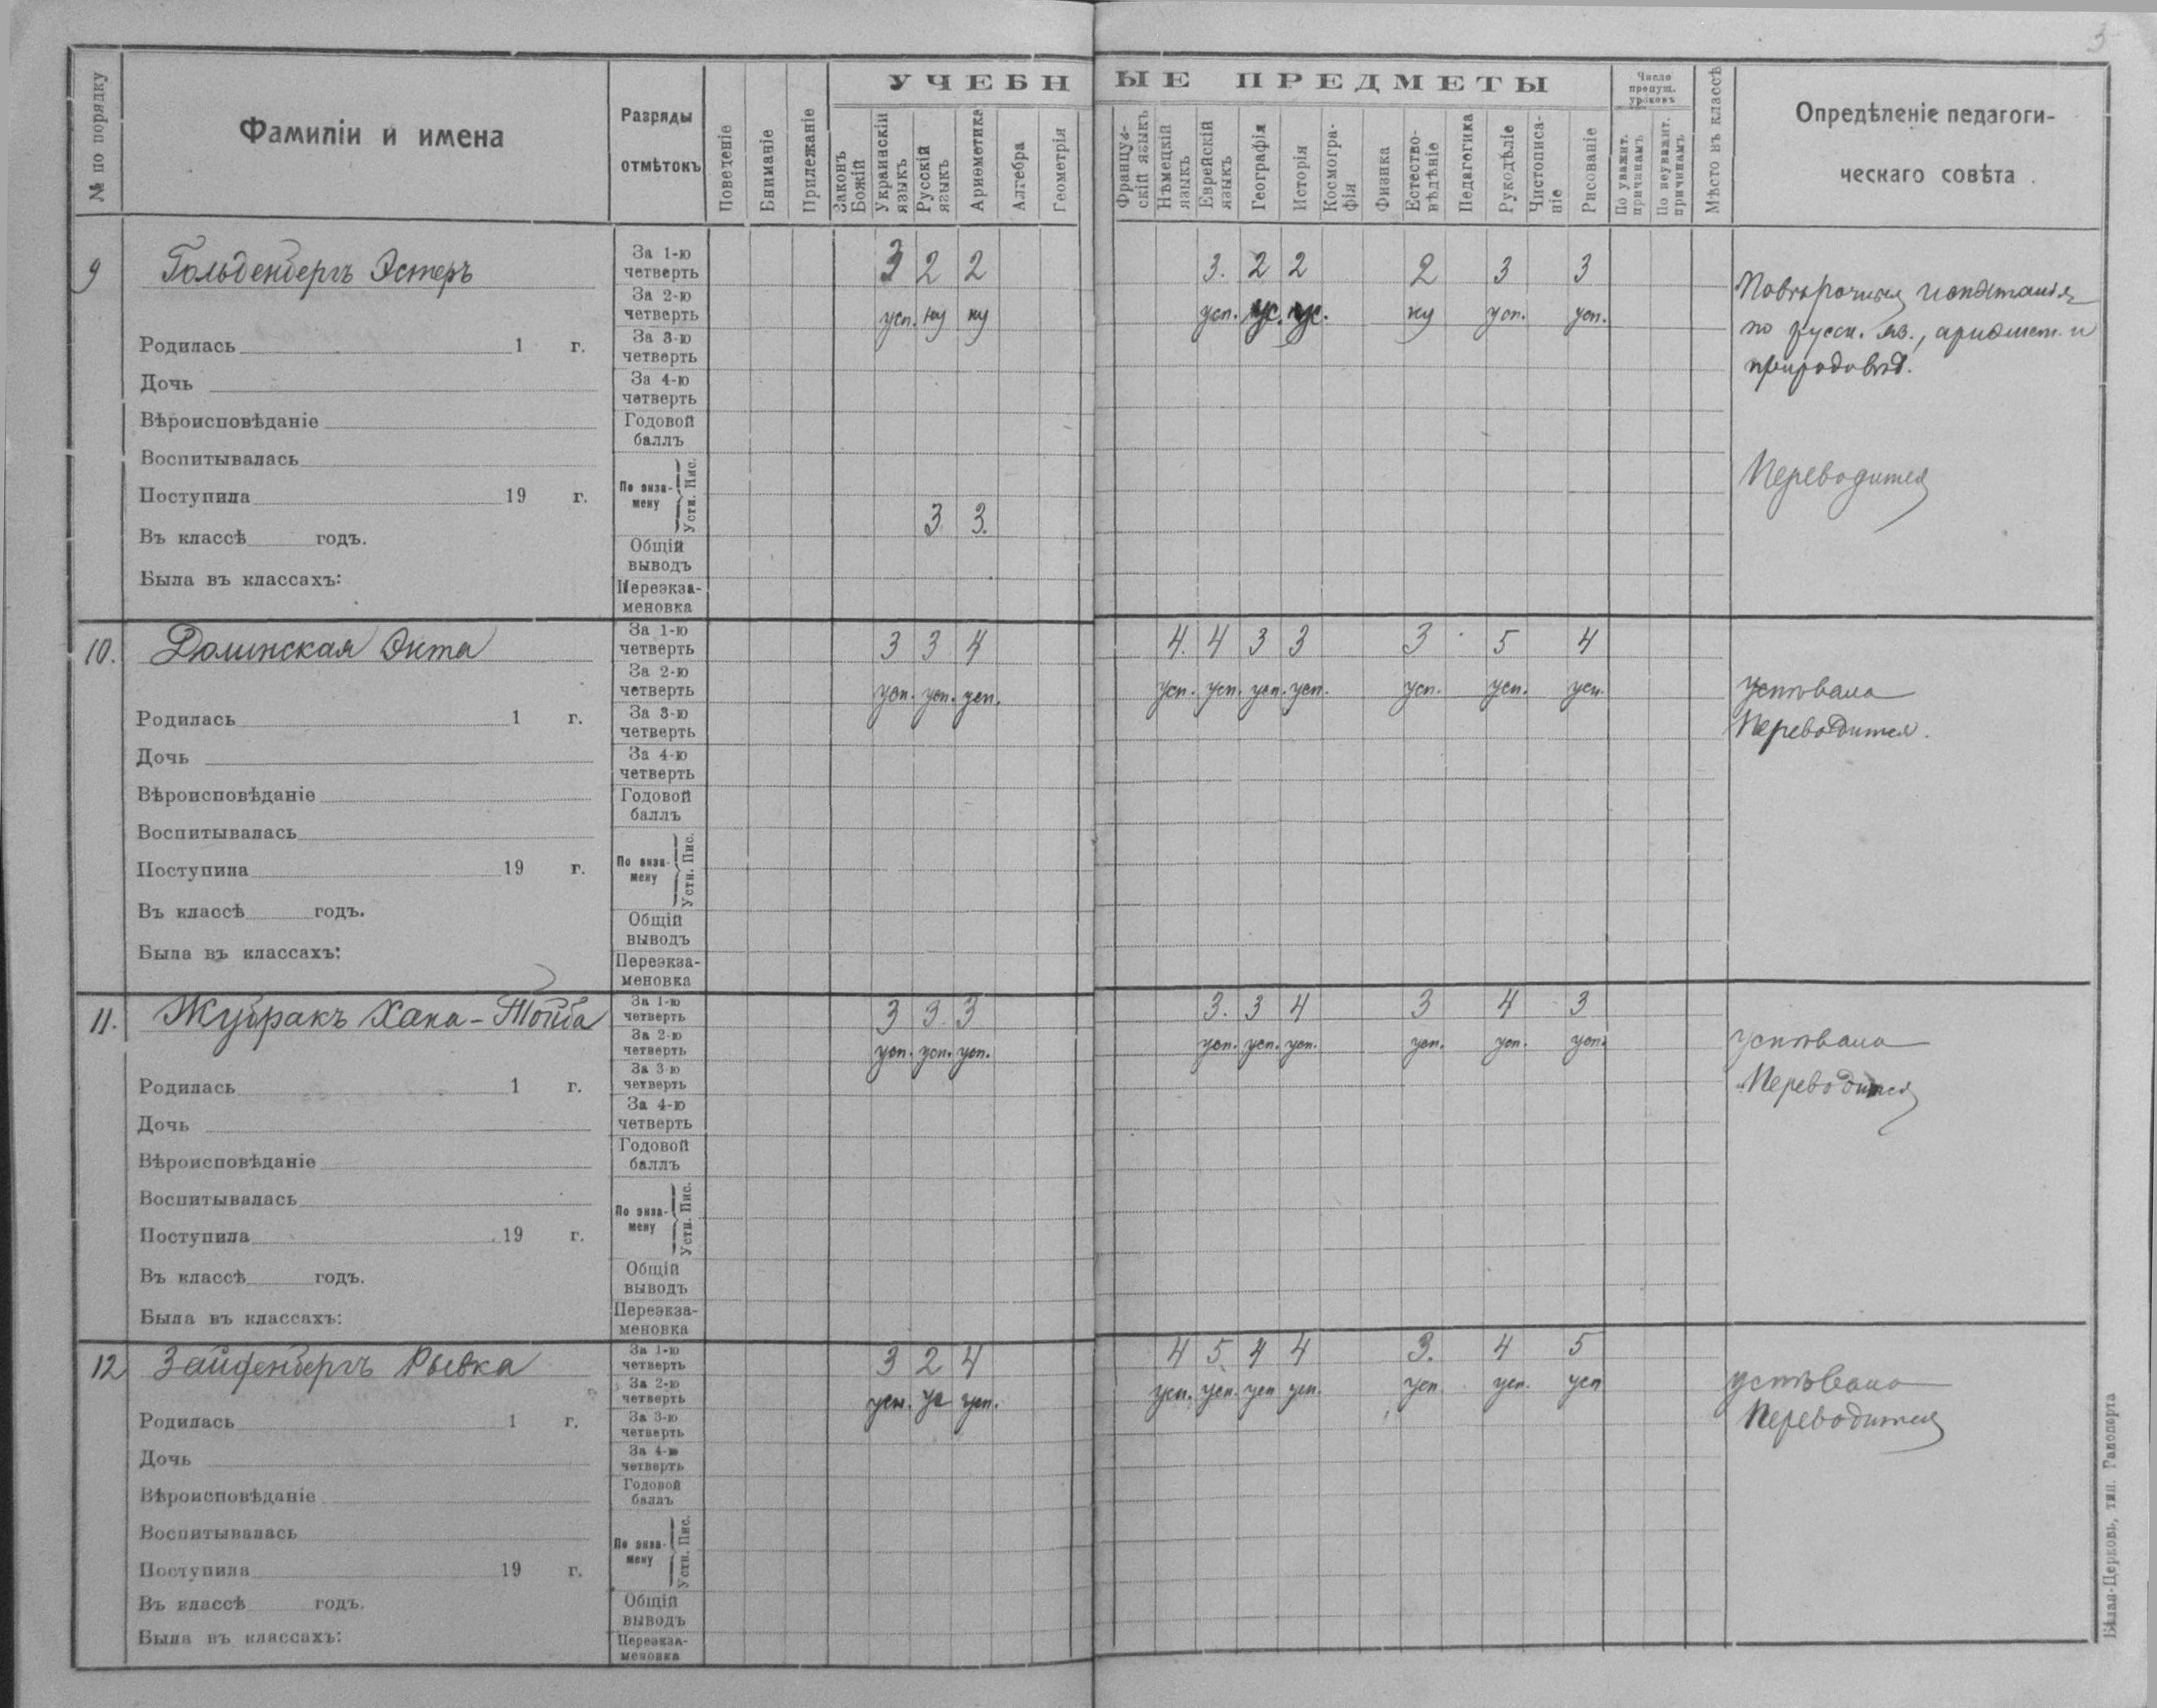 3
УЧЕБНЫЕ ПРЕДМЕТЫ
№ по порядку
Фамиліи и имена
Разряды отмѣтокъ
Поведеніе
Вниманіе
Прилежаніе
Законъ Божій
Украинскій языкъ
Русскій языкъ
Ариѳметика
Алгебра
Геометрія
Француз-скій языкъ
Нѣмецкій языкъ
Еврейскій языкъ
Географія
Исторія
Космогра-фія
Физика
Естество-вѣдѣніе
Педагогика
Рукодѣліе
Чистописа-ніе
Рисованіе
Число пропущ. уроковъ
По уважит. причинамъ
По неуважит. причинамъ
Мѣсто въ классѣ
Опредѣленіе педагоги-
ческаго совѣта
9 Гольденбергъ Эстеръ
За 1-ю четверть 3 2 2 3. 2 2 2 3 3
За 2-ю четверть усп. ну ну усп. ус. ус. ну усп. усп.
За 3-ю четверть
За 4-ю четверть
Годовой баллъ
По экза-мену Устн. Пис. 3 3.
Общій выводъ
Переэкза-меновка
Родилась 1 г.
Дочь
Вѣроисповѣданіе
Воспитывалась
Поступила 19 г.
Въ классѣ годъ.
Была въ классахъ:
испытанія
по русск. яз., ариѳмет. и
природовѣд.
Переводится
10. Долинская Энта
За 1-ю четверть 3 3 4 4. 4 3 3 3 5 4
За 2-ю четверть усп. усп. усп. усп. усп. усп. усп. усп. усп. усп.
За 3-ю четверть
За 4-ю четверть
Годовой баллъ
По экза-мену Устн. Пис.
Общій выводъ
Переэкза-меновка
Родилась 1 г.
Дочь
Вѣроисповѣданіе
Воспитывалась
Поступила 19 г.
Въ классѣ годъ.
Была въ классахъ:
успѣвала
Переводится.
11. Жубракъ Хана-
За 1-ю четверть 3 3. 3 3. 3 4 3 4 3
За 2-ю четверть усп. усп. усп. усп. усп. усп. усп. усп. усп.
За 3-ю четверть
За 4-ю четверть
Годовой баллъ
По экза-мену Устн. Пис.
Общій выводъ
Переэкза-меновка
Родилась 1 г.
Дочь
Вѣроисповѣданіе
Воспитывалась
Поступила 19 г.
Въ классѣ годъ.
Была въ классахъ:
успѣвала
Переводится
12 Зайфенбергъ Рывка
За 1-ю четверть 3 2 4 4 5. 4 4 3. 4 5
За 2-ю четверть усп. ус усп. усп. усп. усп усп. усп. усп. усп
За 3-ю четверть
За 4-ю четверть
Годовой баллъ
По экза-мену Устн. Пис.
Общій выводъ
Переэкза-меновка
Родилась 1 г.
Дочь
Вѣроисповѣданіе
Воспитывалась
Поступила 19 г.
Въ классѣ годъ.
Была въ классахъ:
успѣвала
Переводится
Бѣлая-Церковь, тип. Гапоперта